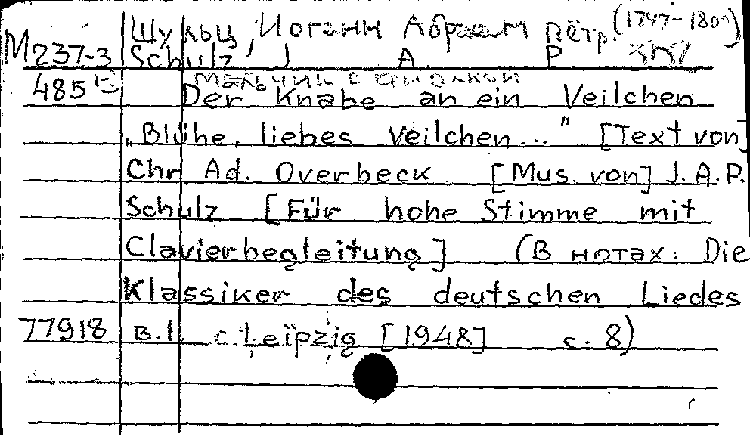 Шульц, Иоганн Абраам Пётр. (1747-1800)
М237-3 Schulz, J. A. P.
Мальчик с фиалкой
485 Der Knabe an ein Veilchen
„Blühe, liebes Veilchen..." [Text von]
Chr. Ad. Overbeck. [Mus. von] J.A.P.
Schulz [Für hohe Stimme mit
Clavierbegleitung] (В нотах: Die
Klassiker des deutschen Liedes
77918 B.I. Leipzig [1948] с. 8)